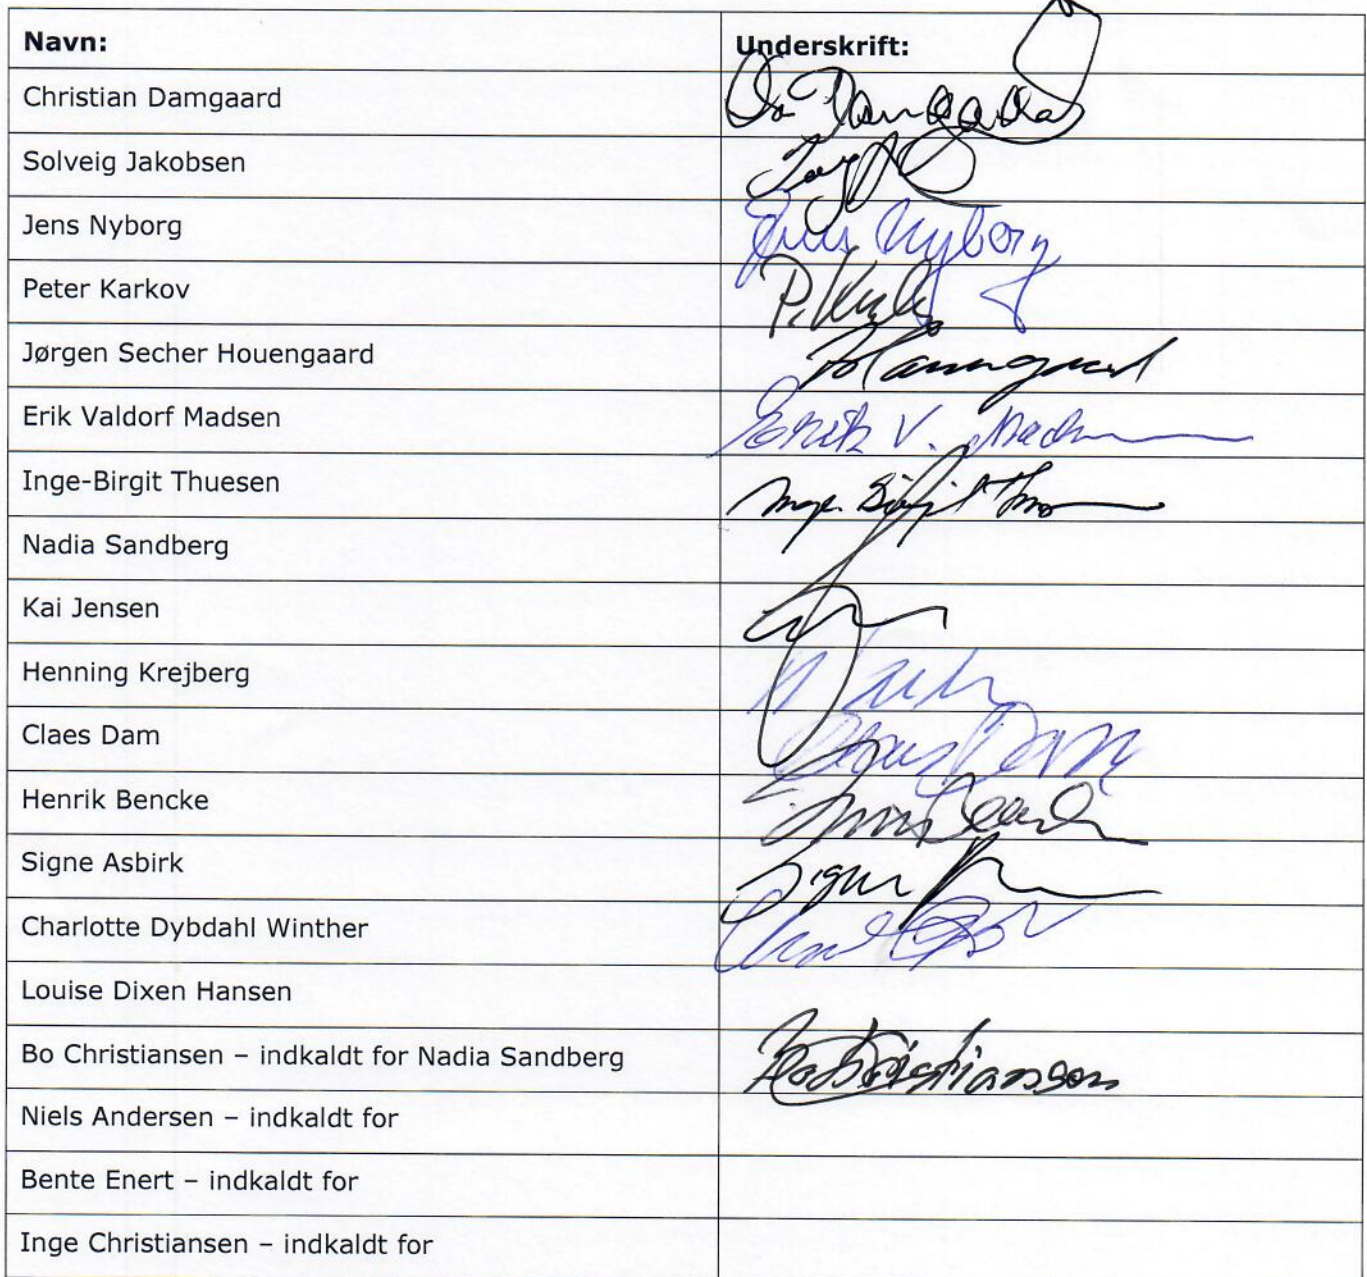 Navn: Underskrift:
Christian Damgaard
Solveig Jakobsen
Jens Nyborg Jens Nyborg
Peter Karkov
Jørgen Secher Houengaard
Erik Valdorf Madsen Erik V. Madsen
Inge-Birgit Thuesen Inge-Birgit
Nadia Sandberg
Kai Jensen
Henning Krejberg
Claes Dam Claes Dam
Henrik Bencke
Signe Asbirk Signe
Charlotte Dybdahl Winther
Louise Dixen Hansen
Bo Christiansen – indkaldt for Nadia Sandberg Bo Christiansen
Niels Andersen – indkaldt for
Bente Enert – indkaldt for
Inge Christiansen – indkaldt for